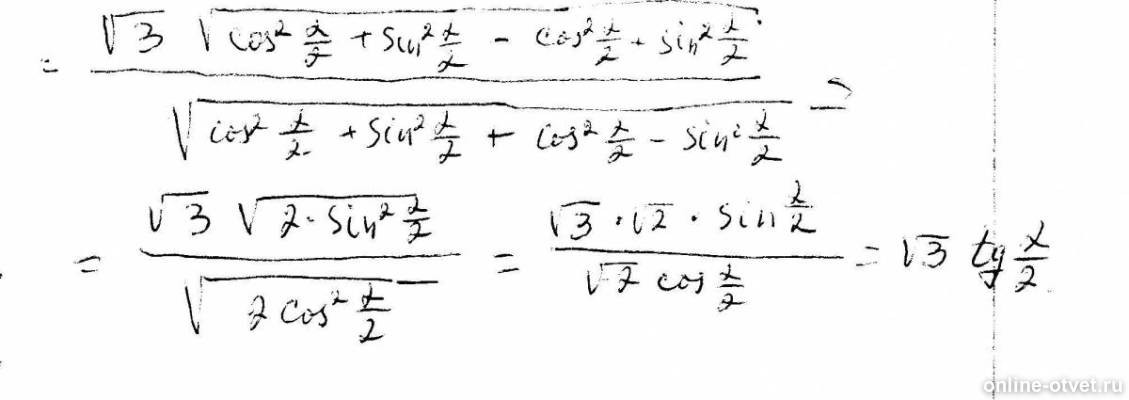 = √3 √(cos² α/2 + sin² α/2 - cos² α/2 + sin² α/2) / √(cos² α/2 + sin² α/2 + cos² α/2 - sin² α/2) =
= √3 √(2·sin² α/2) / √(2 cos² α/2) = √3 · √2 · sin α/2 / √2 cos α/2 = √3 tg α/2
online-otvet.ru